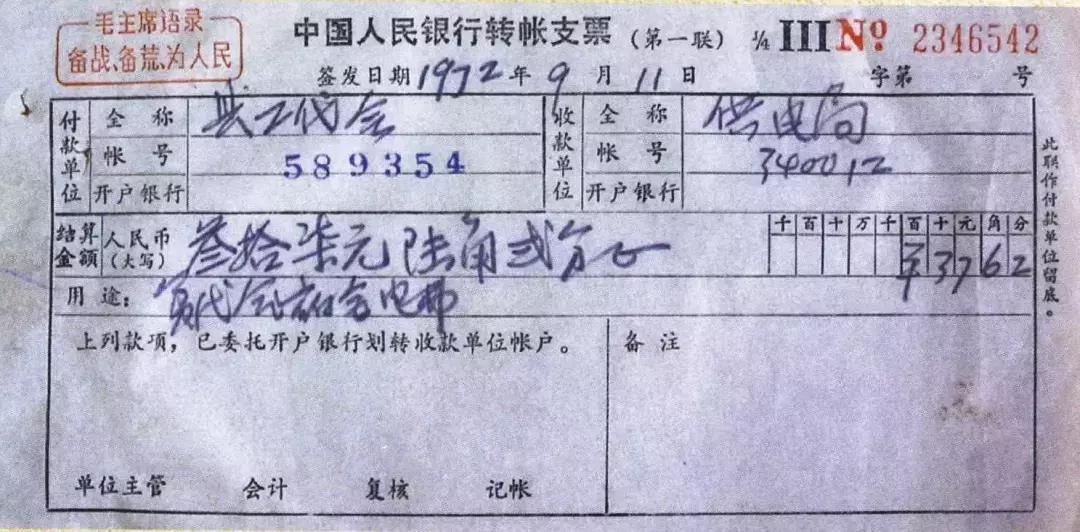 毛主席语录
备战、备荒、为人民
中国人民银行转帐支票 (第一联) ¼ III No 2346542
签发日期1972年9月11日 字第 号
付款单位 全称 县工代会 收款单位 全称 供电局
帐号 589354 帐号 340012
开户银行 开户银行
结算金额 人民币(大写) 叁拾柒元陆角弍分正 千百十万千百十元角分 ¥3762
用途: 代会 电费
上列款项,已委托开户银行划转收款单位帐户。 备注
单位主管 会计 复核 记帐
此联作付款单位留底。